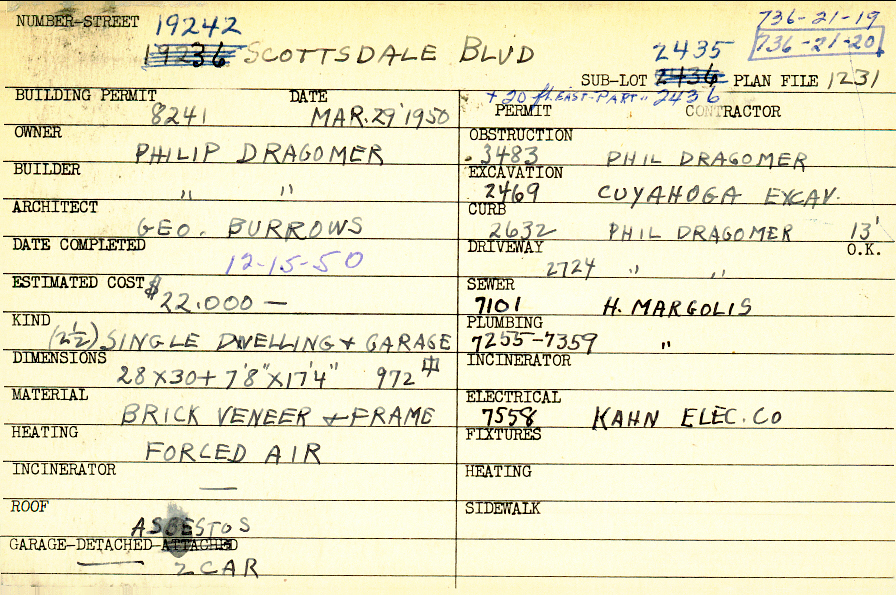 NUMBER-STREET 19242 736-21-19
19236 SCOTTSDALE BLVD 2435 736-21-20
SUB-LOT 2436 PLAN FILE 1231
+20 ft. EAST-PART " 2436
BUILDING PERMIT DATE
8241 MAR.29'1950
OWNER
PHILIP DRAGOMER
BUILDER
" "
ARCHITECT
GEO. BURROWS
DATE COMPLETED
12-15-50
ESTIMATED COST
$22.000 —
KIND
(2½) SINGLE DWELLING + GARAGE
DIMENSIONS
28 X 30 + 7'8" X 17'4" 972
MATERIAL
BRICK VENEER + FRAME
HEATING
FORCED AIR
INCINERATOR
—
ROOF
ASBESTOS
GARAGE-DETACHED-ATTACHED
2 CAR
PERMIT CONTRACTOR
OBSTRUCTION
3483 PHIL DRAGOMER
EXCAVATION
2469 CUYAHOGA EXCAV.
CURB
2632 PHIL DRAGOMER 13'
DRIVEWAY O.K.
2724 " "
SEWER
7101 H. MARGOLIS
PLUMBING
7255-7359 "
INCINERATOR
ELECTRICAL
7558 KAHN ELEC. CO
FIXTURES
HEATING
SIDEWALK